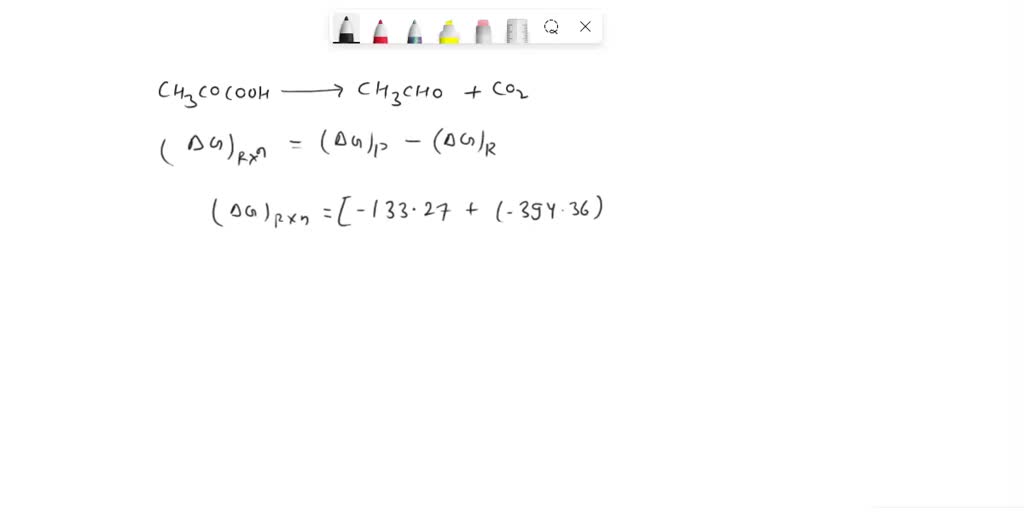 CH₃COCOOH ⟶ CH₃CHO + CO₂
(ΔG)Rxn = (ΔG)P − (ΔG)R
(ΔG)Rxn = [-133.27 + (-394.36)